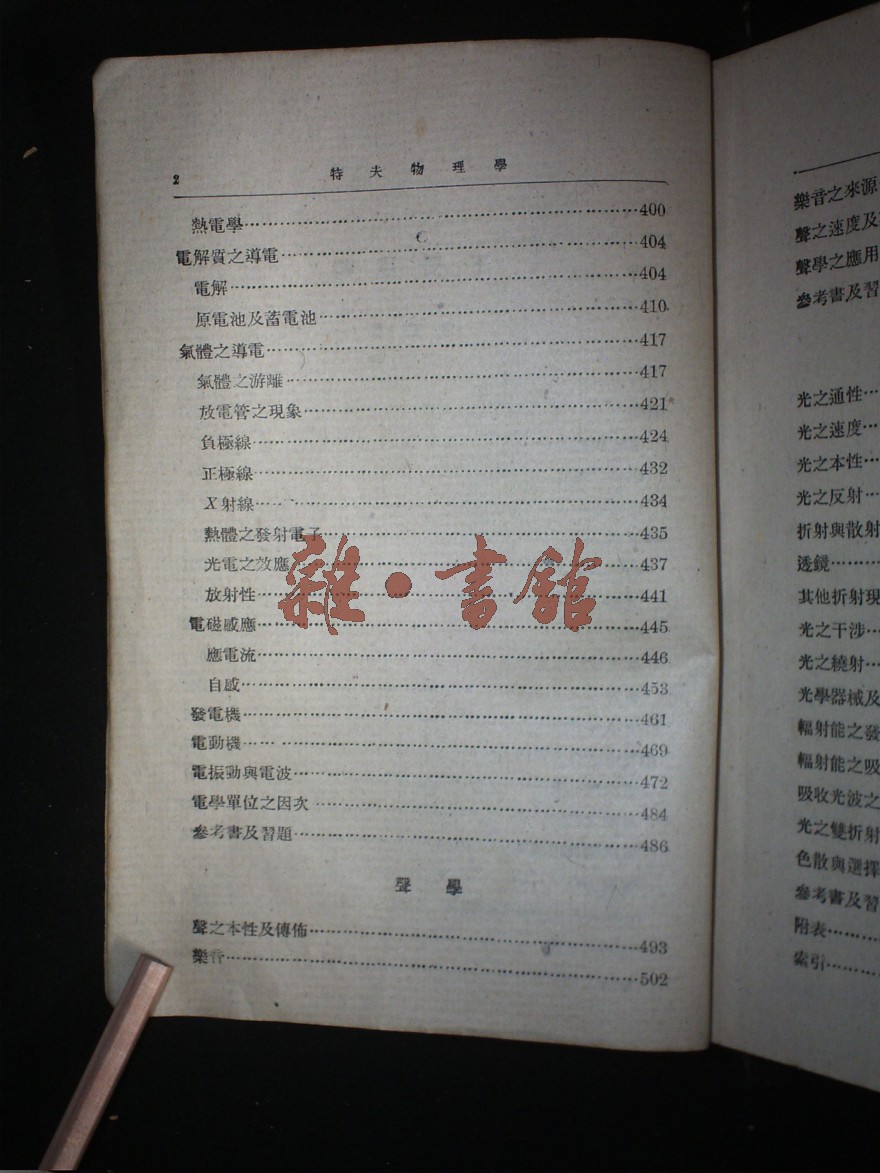 2 特夫物理學
熱電學……400
電解質之導電……404
電解……404
原電池及蓄電池……410
氣體之導電……417
氣體之游離……417
放電管之現象……421
負極線……424
正極線……432
X射線……434
熱體之發射電子……435
光電之效應……437
放射性……441
電磁感應……445
應電流……446
自感……453
發電機……461
電動機……469
電振動與電波……472
電學單位之因次……484
參考書及習題……486
聲學
聲之本性及傳佈……493
樂音……502
雜·書館
樂音之來源
聲之速度及
聲學之應用
參考書及習
光之通性…
光之速度…
光之本性…
光之反射…
折射與散射
透鏡……
其他折射現
光之干涉…
光之繞射…
光學器械及
輻射能之發
輻射能之吸
吸收光波之
光之雙折射
色散與選擇
參考書及習
附表……
索引……